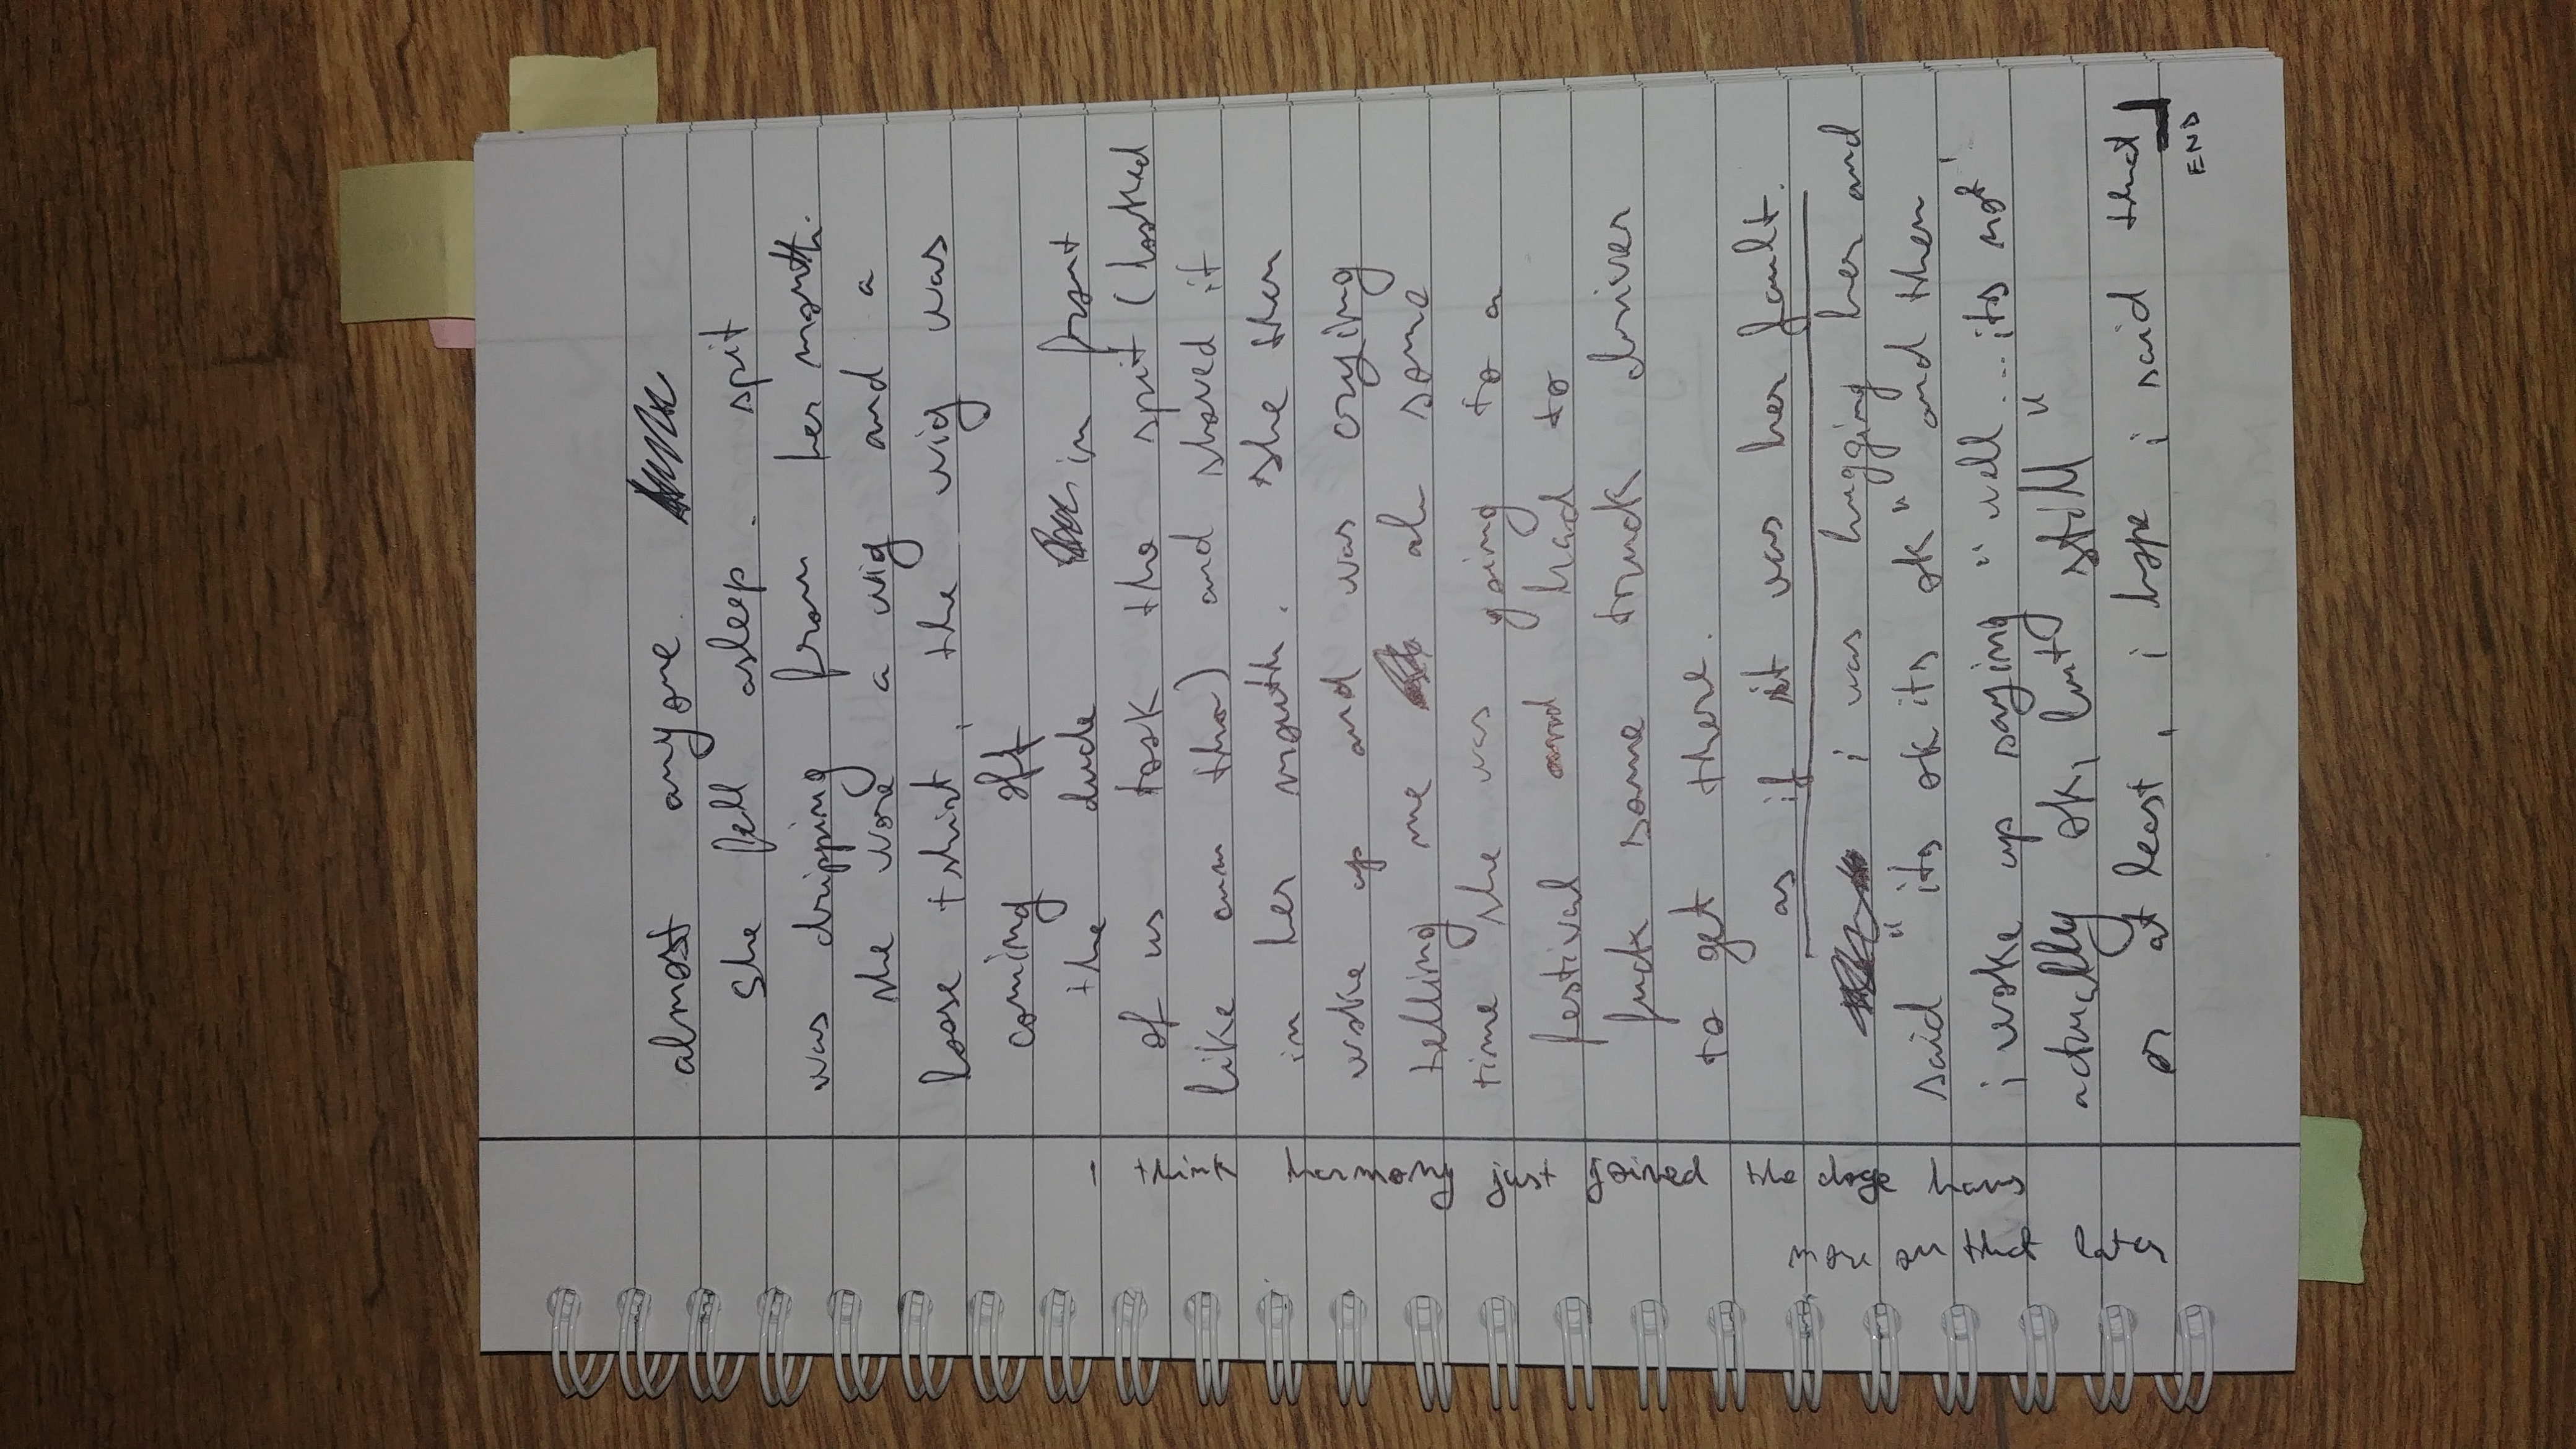 almost anyone.
She fell asleep. spit
was dripping from her mouth.
she wore a wig and a
loose tshirt, the wig was
coming off
the dude in front
of us took the spit (looked
like cum tho) and shoved it
in her mouth. She then
woke up and was crying
telling me some
time she was going to a
festival and had to
fuck some truck driver
to get there.
as if it was her fault.
i was hugging her and
said "its ok its ok" and then
i woke up saying "well... its not
actually ok, but still"
or at least, i hope i said that
END
i think hermony just joined the doge haus
more on that later